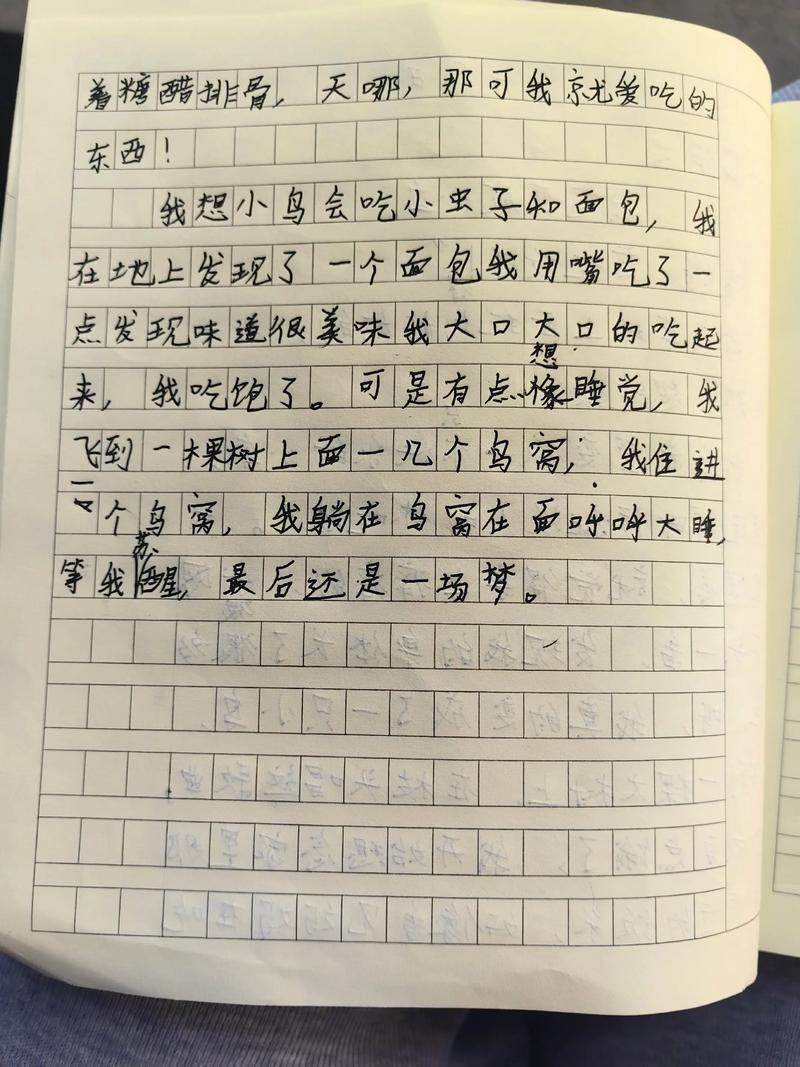 着糖醋排骨，天哪，那可我京尤爱吃的
东西！
我想小鸟会吃小虫子和面包，我
在地上发现了一个面包我用嘴吃了一
点发现味道很美味我大口大口的吃起
想
来，我吃饱了。可是有点像睡觉，我
飞到一棵树上面一几个鸟窝，我住进
一个鸟窝，我躺在鸟窝在面呼呼大睡，
苏
等我醒，最后还是一场梦。